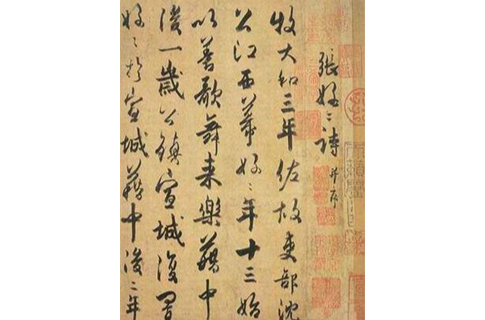 張好〻詩 并序
牧大和三年佐故吏部沈
公江西幕好〻年十三始
以善歌舞来樂籍中
後一歲公鎮宣城復置
好〻於宣城籍中後二年